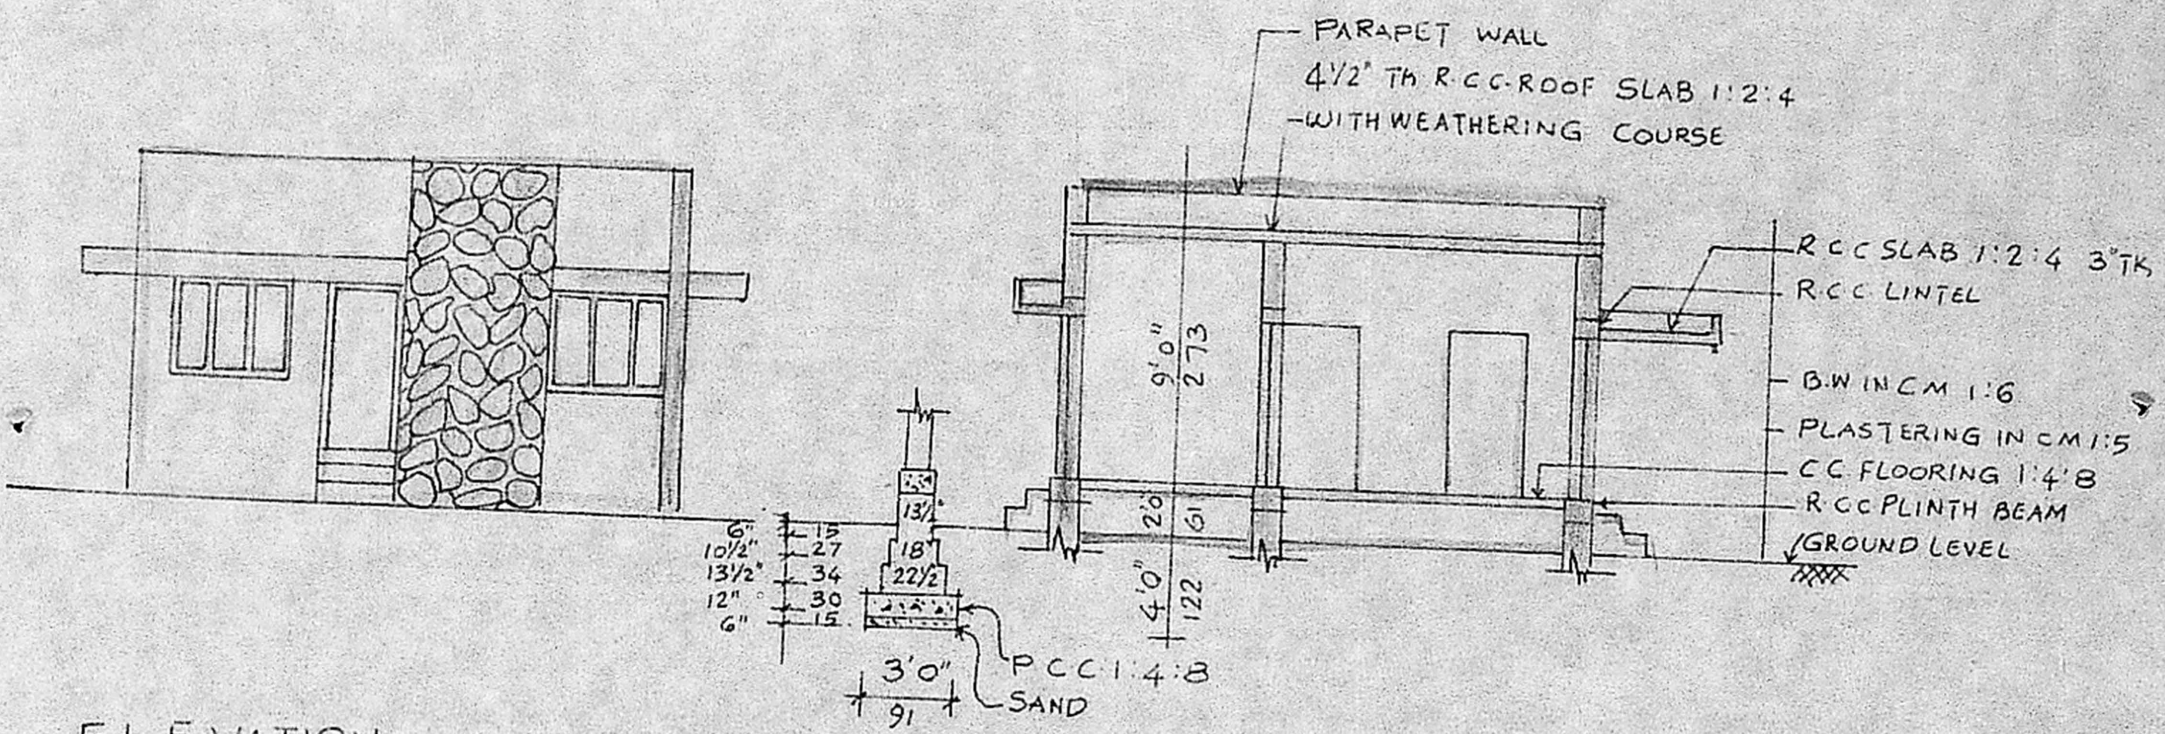 PARAPET WALL
4 1/2" TH R.C.C. ROOF SLAB 1:2:4
WITH WEATHERING COURSE
R C C SLAB 1:2:4 3" TK
R.C.C. LINTEL
9'0"
273
B.W IN C M 1:6
PLASTERING IN C M 1:5
C C FLOORING 1:4:8
R C C PLINTH BEAM
GROUND LEVEL
2'0"
61
4'0"
122
13 1/2"
18"
22 1/2
6" 15
10 1/2" 27
13 1/2" 34
12" 30
6" 15
3'0"
91
P C C 1:4:8
SAND
ELEVATION